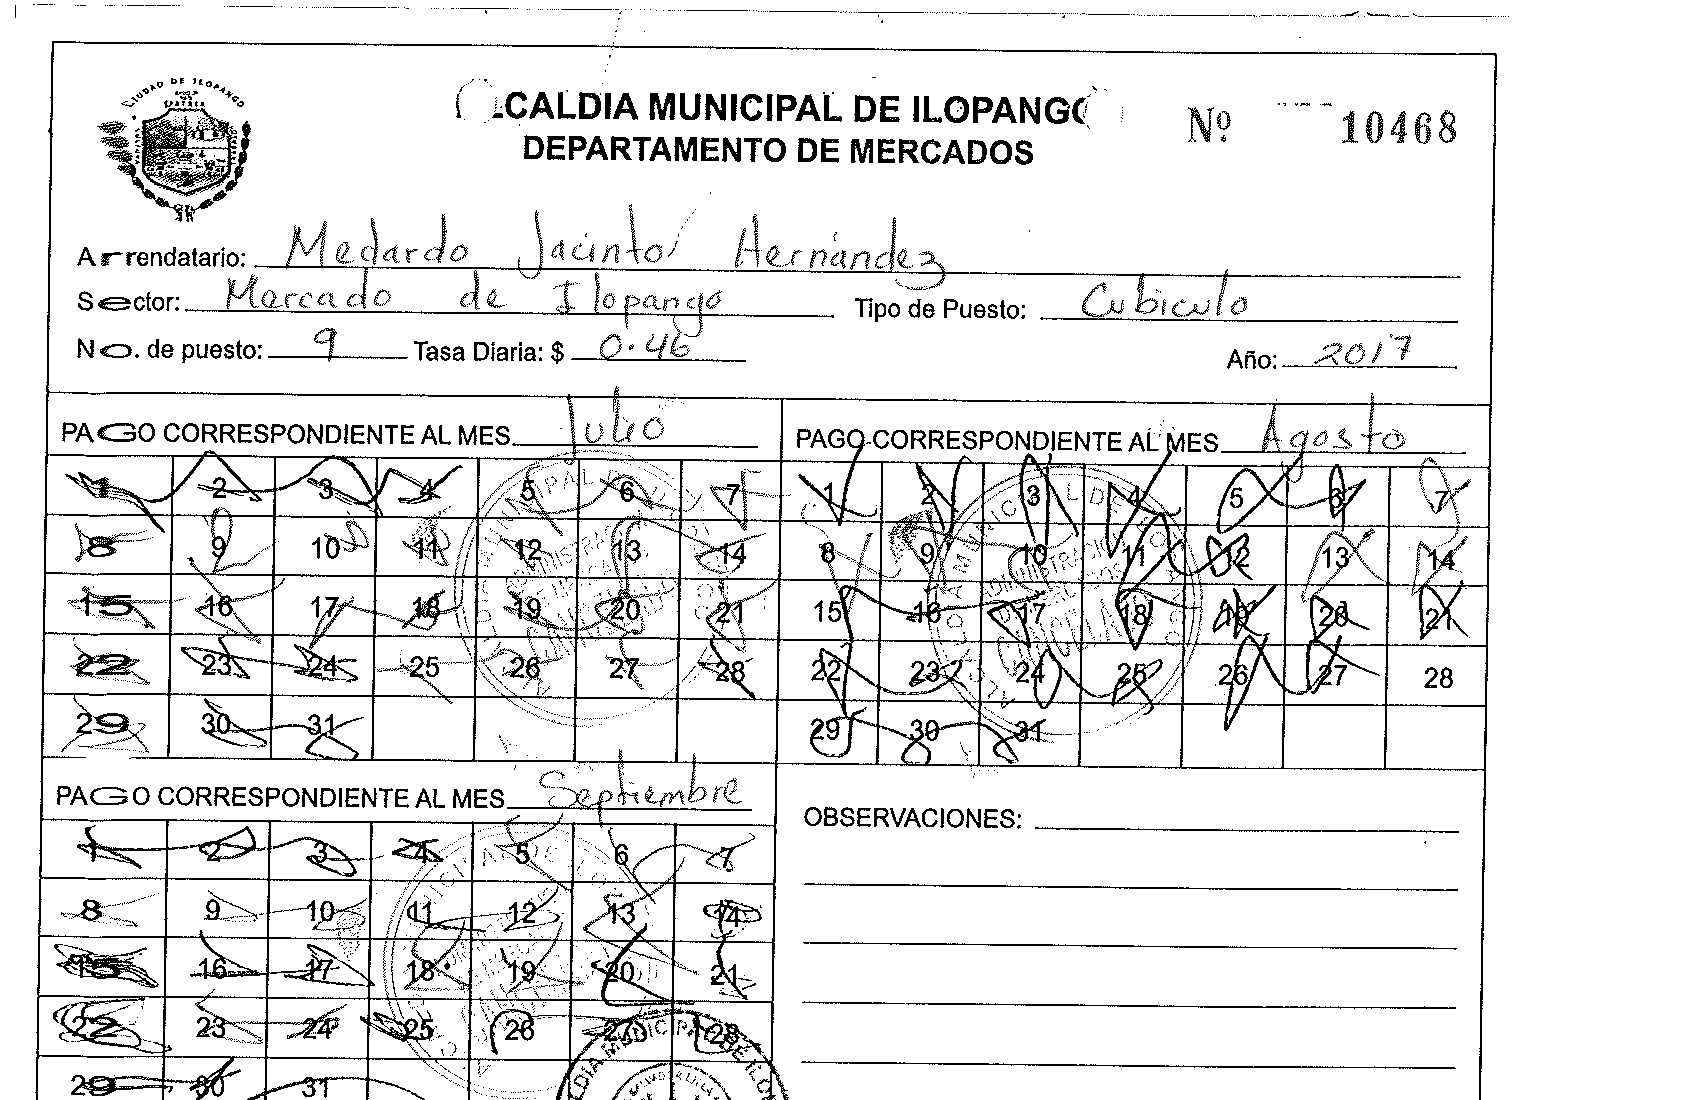 CIUDAD DE ILOPANGO
ALCALDIA MUNICIPAL DE ILOPANGO
DEPARTAMENTO DE MERCADOS
Nº 10468
Arrendatario: Medardo Jacinto Hernández
Sector: Mercado de Ilopango Tipo de Puesto: Cubiculo
No. de puesto: 9 Tasa Diaria: $ 0.46 Año: 2017
PAGO CORRESPONDIENTE AL MES Julio
1 2 3 4 5 6 7
8 9 10 11 12 13 14
15 16 17 18 19 20 21
22 23 24 25 26 27 28
29 30 31
PAGO CORRESPONDIENTE AL MES Agosto
1 2 3 4 5 6 7
8 9 10 11 12 13 14
15 16 17 18 19 20 21
22 23 24 25 26 27 28
29 30 31
PAGO CORRESPONDIENTE AL MES Septiembre
1 2 3 4 5 6 7
8 9 10 11 12 13 14
15 16 17 18 19 20 21
22 23 24 25 26 27 28
29 30 31
OBSERVACIONES: